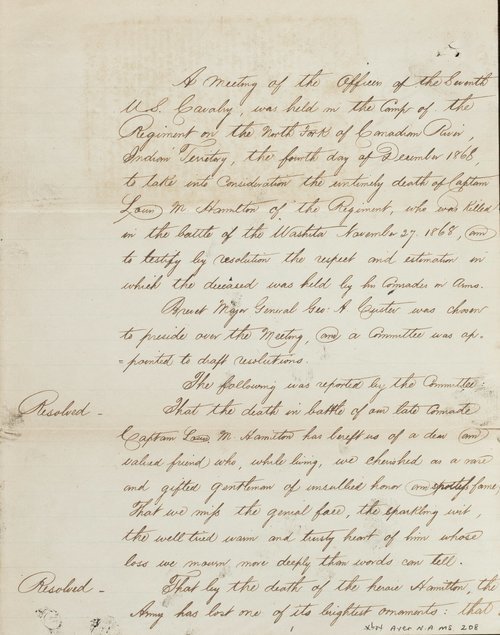 A Meeting of the Officers of the Seventh
U.S. Cavalry was held in the Camp of the
Regiment on the North Fork of Canadian River,
Indian Territory, the fourth day of December 1868,
to take into consideration the untimely death of Captain
Louis M. Hamilton of the Regiment, who was killed
in the battle of the Washita November 27. 1868, and
to testify by resolution the respect and estimation in
which the deceased was held by his Comrades in Arms.
Brevet Major General Geo. A Custer was chosen
to preside over the Meeting, and a Committee was ap-
=pointed to draft resolutions.
The following was reported by the Committee:
Resolved - That the death in battle of our late Comrade
Captain Louis M. Hamilton has bereft us of a dear and
valued friend who, while living, we cherished as a rare
and gifted gentleman of unsullied honor and spotless fame,
That we miss the genial face, the sparkling wit,
the well tried warm and trusty heart of him whose
loss we mourn more deeply than words can tell.
Resolved - That by the death of the heroic Hamilton, the
Army has lost one of its brightest ornaments: that
1
Ayer N.A. MS 208